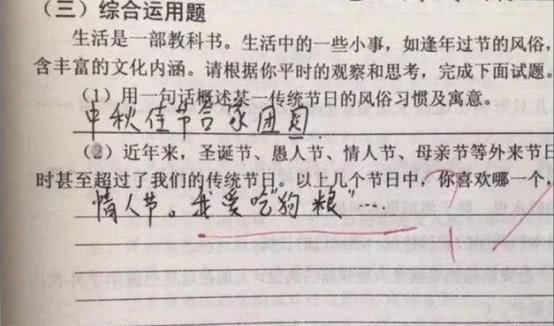 （三）综合运用题
生活是一部教科书。生活中的一些小事，如逢年过节的风俗，
含丰富的文化内涵。请根据你平时的观察和思考，完成下面试题。
（1）用一句话概述某一传统节日的风俗习惯及寓意。
中秋佳节合家团圆
（2）近年来，圣诞节、愚人节、情人节、母亲节等外来节日
时甚至超过了我们的传统节日。以上几个节日中，你喜欢哪一个，
情人节。我爱吃“狗粮”…